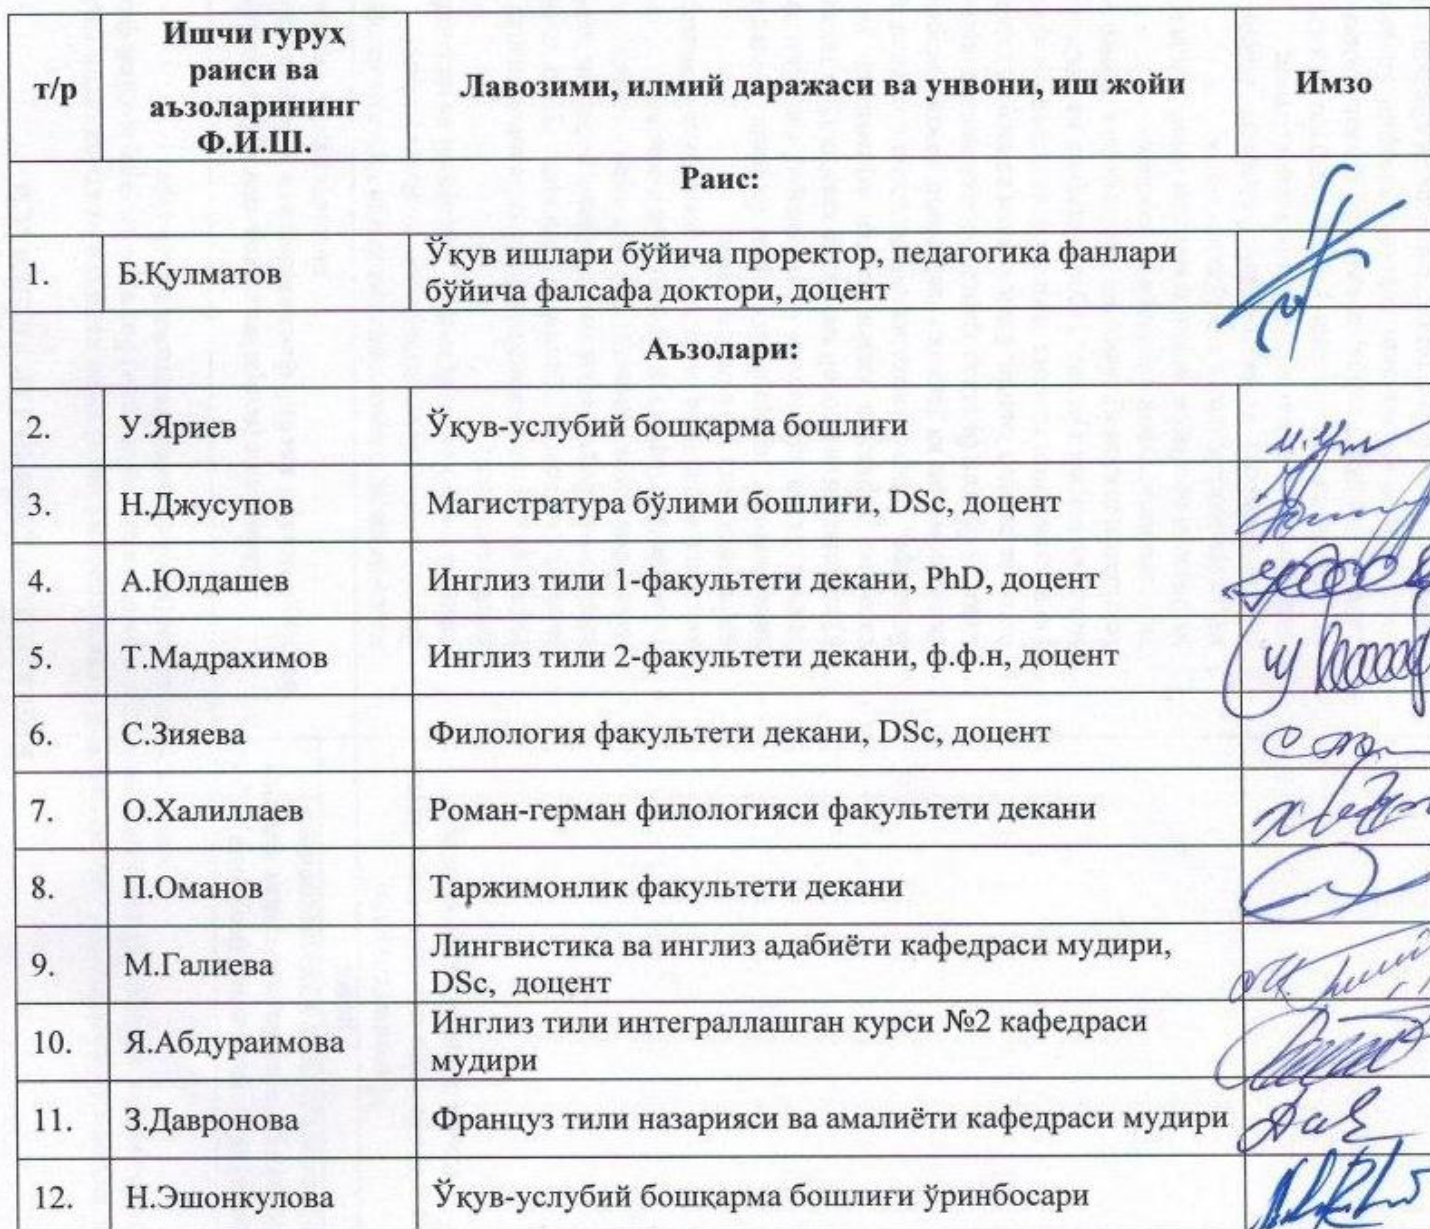 т/р
Ишчи гуруҳ
раиси ва
аъзоларининг
Ф.И.Ш.
Лавозими, илмий даражаси ва унвони, иш жойи
Имзо
Раис:
1.
Б.Қулматов
Ўқув ишлари бўйича проректор, педагогика фанлари
бўйича фалсафа доктори, доцент
Аъзолари:
2.
У.Яриев
Ўқув-услубий бошқарма бошлиғи
3.
Н.Джусупов
Магистратура бўлими бошлиғи, DSc, доцент
4.
А.Юлдашев
Инглиз тили 1-факультети декани, PhD, доцент
5.
Т.Мадрахимов
Инглиз тили 2-факультети декани, ф.ф.н, доцент
6.
С.Зияева
Филология факультети декани, DSc, доцент
7.
О.Халиллаев
Роман-герман филологияси факультети декани
8.
П.Оманов
Таржимонлик факультети декани
9.
М.Галиева
Лингвистика ва инглиз адабиёти кафедраси мудири,
DSc, доцент
10.
Я.Абдураимова
Инглиз тили интеграллашган курси №2 кафедраси
мудири
11.
З.Давронова
Француз тили назарияси ва амалиёти кафедраси мудири
12.
Н.Эшонкулова
Ўқув-услубий бошқарма бошлиғи ўринбосари